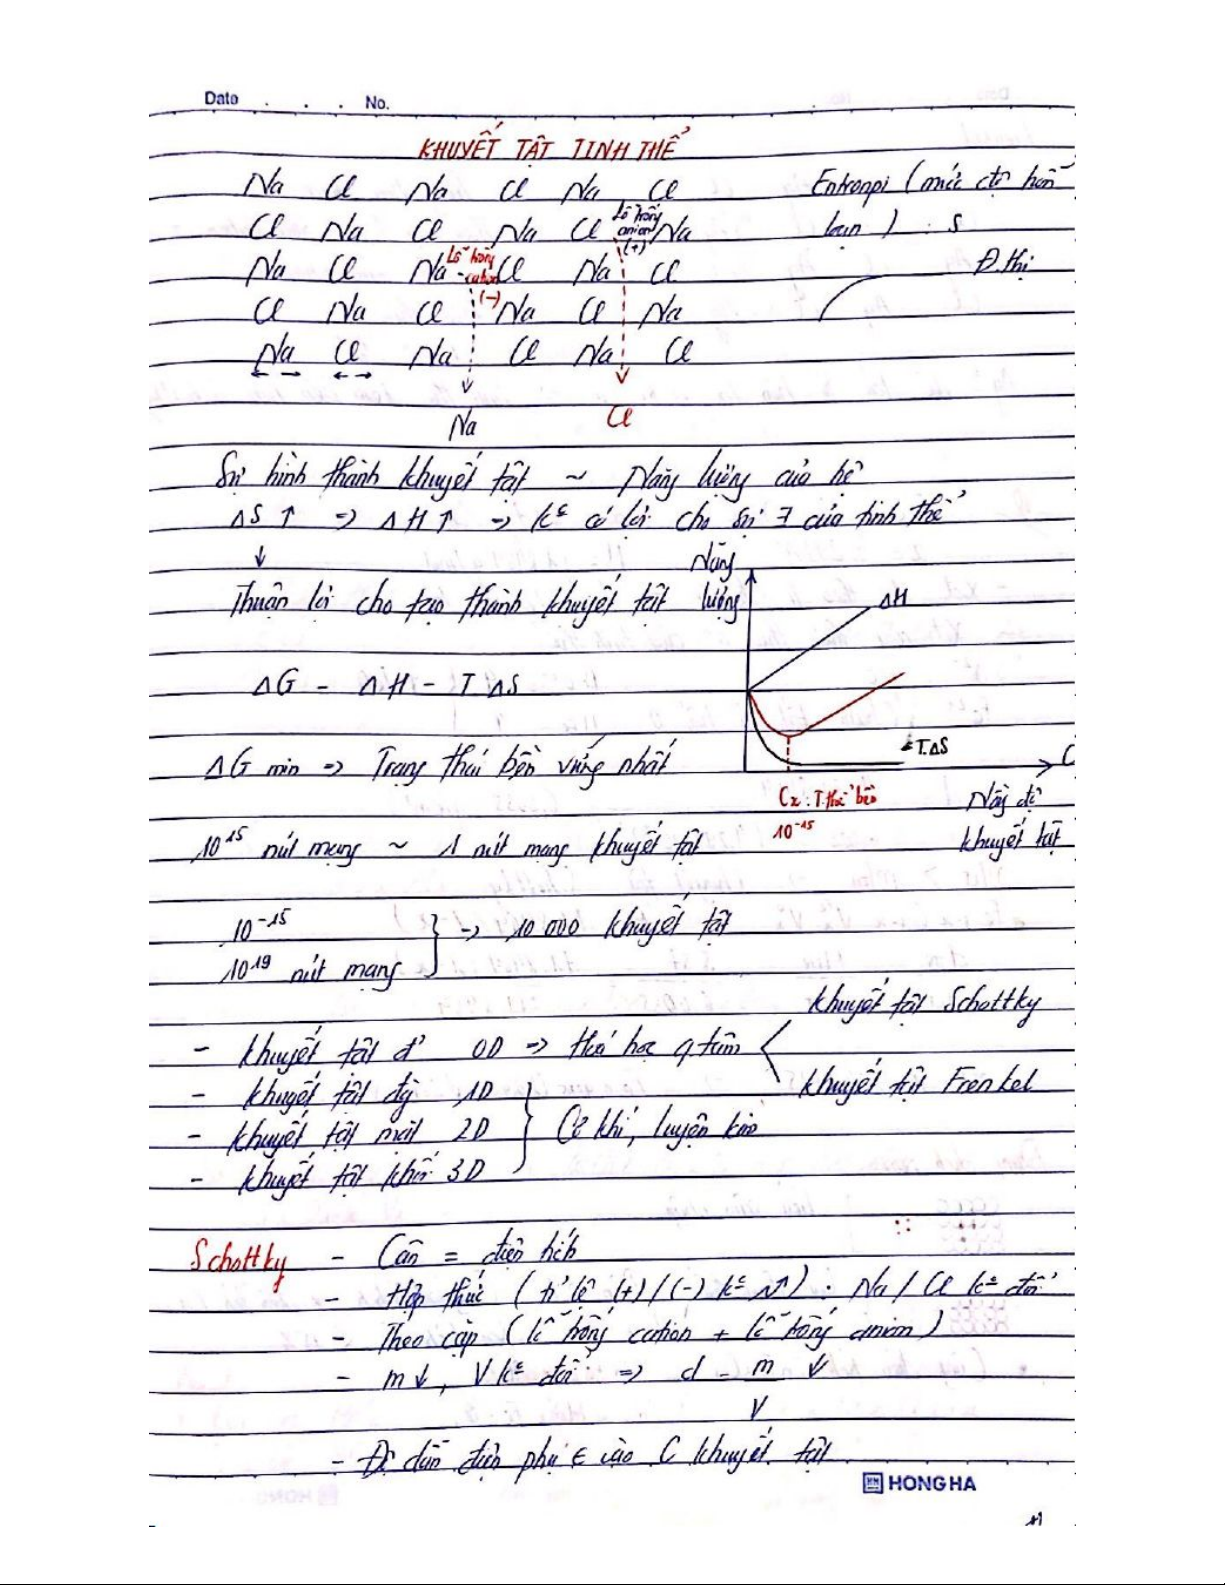 Date . . . No.
KHUYẾT TẬT TINH THỂ
Na Cl Na Cl Na Cl Entronpi (mức độ hỗn
Cl Na Cl Na Cl Lỗ hổng anion (+) Na loạn) : S
Na Cl Na Lỗ hổng cation (-) Cl Na Cl Đ.thị
Cl Na Cl Na Cl Na
Na Cl Na Cl Na Cl
Na Cl
Sự hình thành khuyết tật ~ Năng lượng của hệ
ΔS ↑ => ΔH ↑ => kº có lợi cho sự ∃ của tinh thể
↓
Thuận lợi cho tạo thành khuyết tật
Năng lượng
ΔH
ΔG = ΔH - T ΔS
T.ΔS
C
ΔG min => Trạng thái bền vững nhất
Cx : T.thể bền
10⁻¹⁵
Nồng độ
khuyết tật
10¹⁵ nút mạng ~ 1 nút mạng khuyết tật
10⁻¹⁵
10¹⁹ nút mạng } => 10 000 khuyết tật
- Khuyết tật đ' 0D => Hoá học q.tâm < Khuyết tật Schottky
Khuyết tật Frenkel
- Khuyết tật đg 1D
- Khuyết tật mặt 2D } Cơ khí, luyện kim
- Khuyết tật khối 3D
Schottky - Cân = điện tích
- Hợp thức (tỉ lệ (+)/(-) kº ) : Na / Cl kº đổi
- Theo cặp (lỗ hổng cation + lỗ hổng anion)
- m↓, V kº đổi => d = m/V ↓
- Độ dẫn điện phụ ∈ vào C khuyết tật
HONG HA